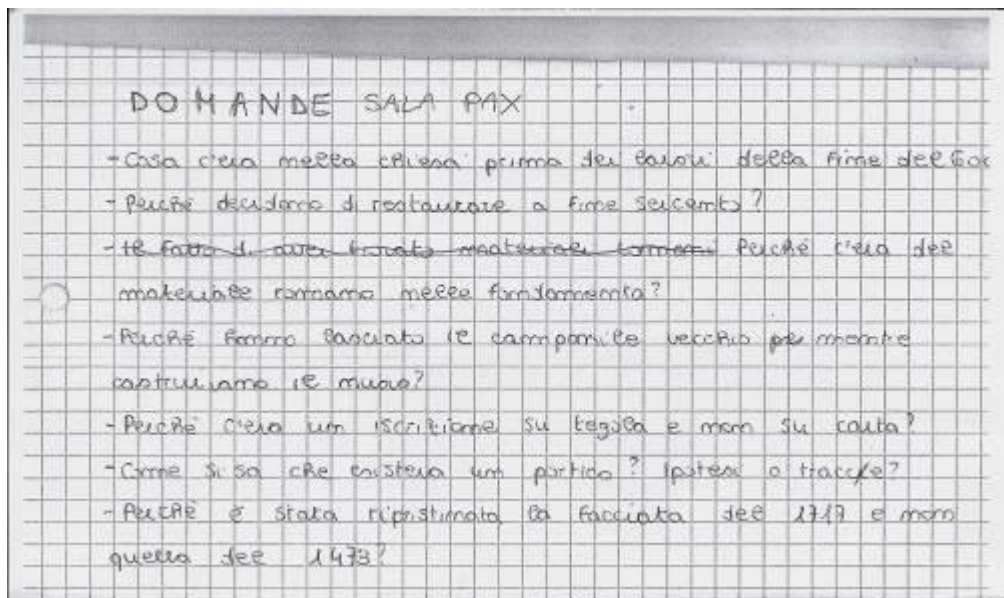 DOMANDE SALA PAX
- Cosa c'era nella chiesa prima dei lavori della fine del 600
- Perché decidono di restaurare a fine seicento?
- Il fatto di aver trovato materiale romano Perché c'era del
materiale romano nelle fondamenta?
- Perché hanno lasciato il campanile vecchio pe mentre
costruivano il nuovo?
- Perché c'era un iscrizione su tegola e non su carta?
- Come si sa che esisteva un portico? Ipotesi o tracce?
- Perché è stata ripristinata la facciata del 1717 e non
quella del 1473?